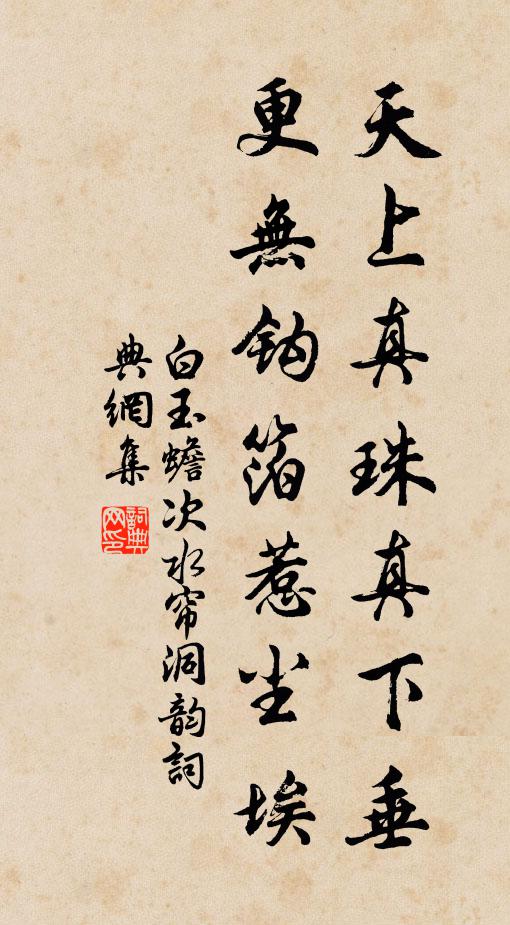 天上真珠真下垂
更無鈎箔惹尘埃
白玉蟾次水帘洞韵詞
典網集
詞典網印